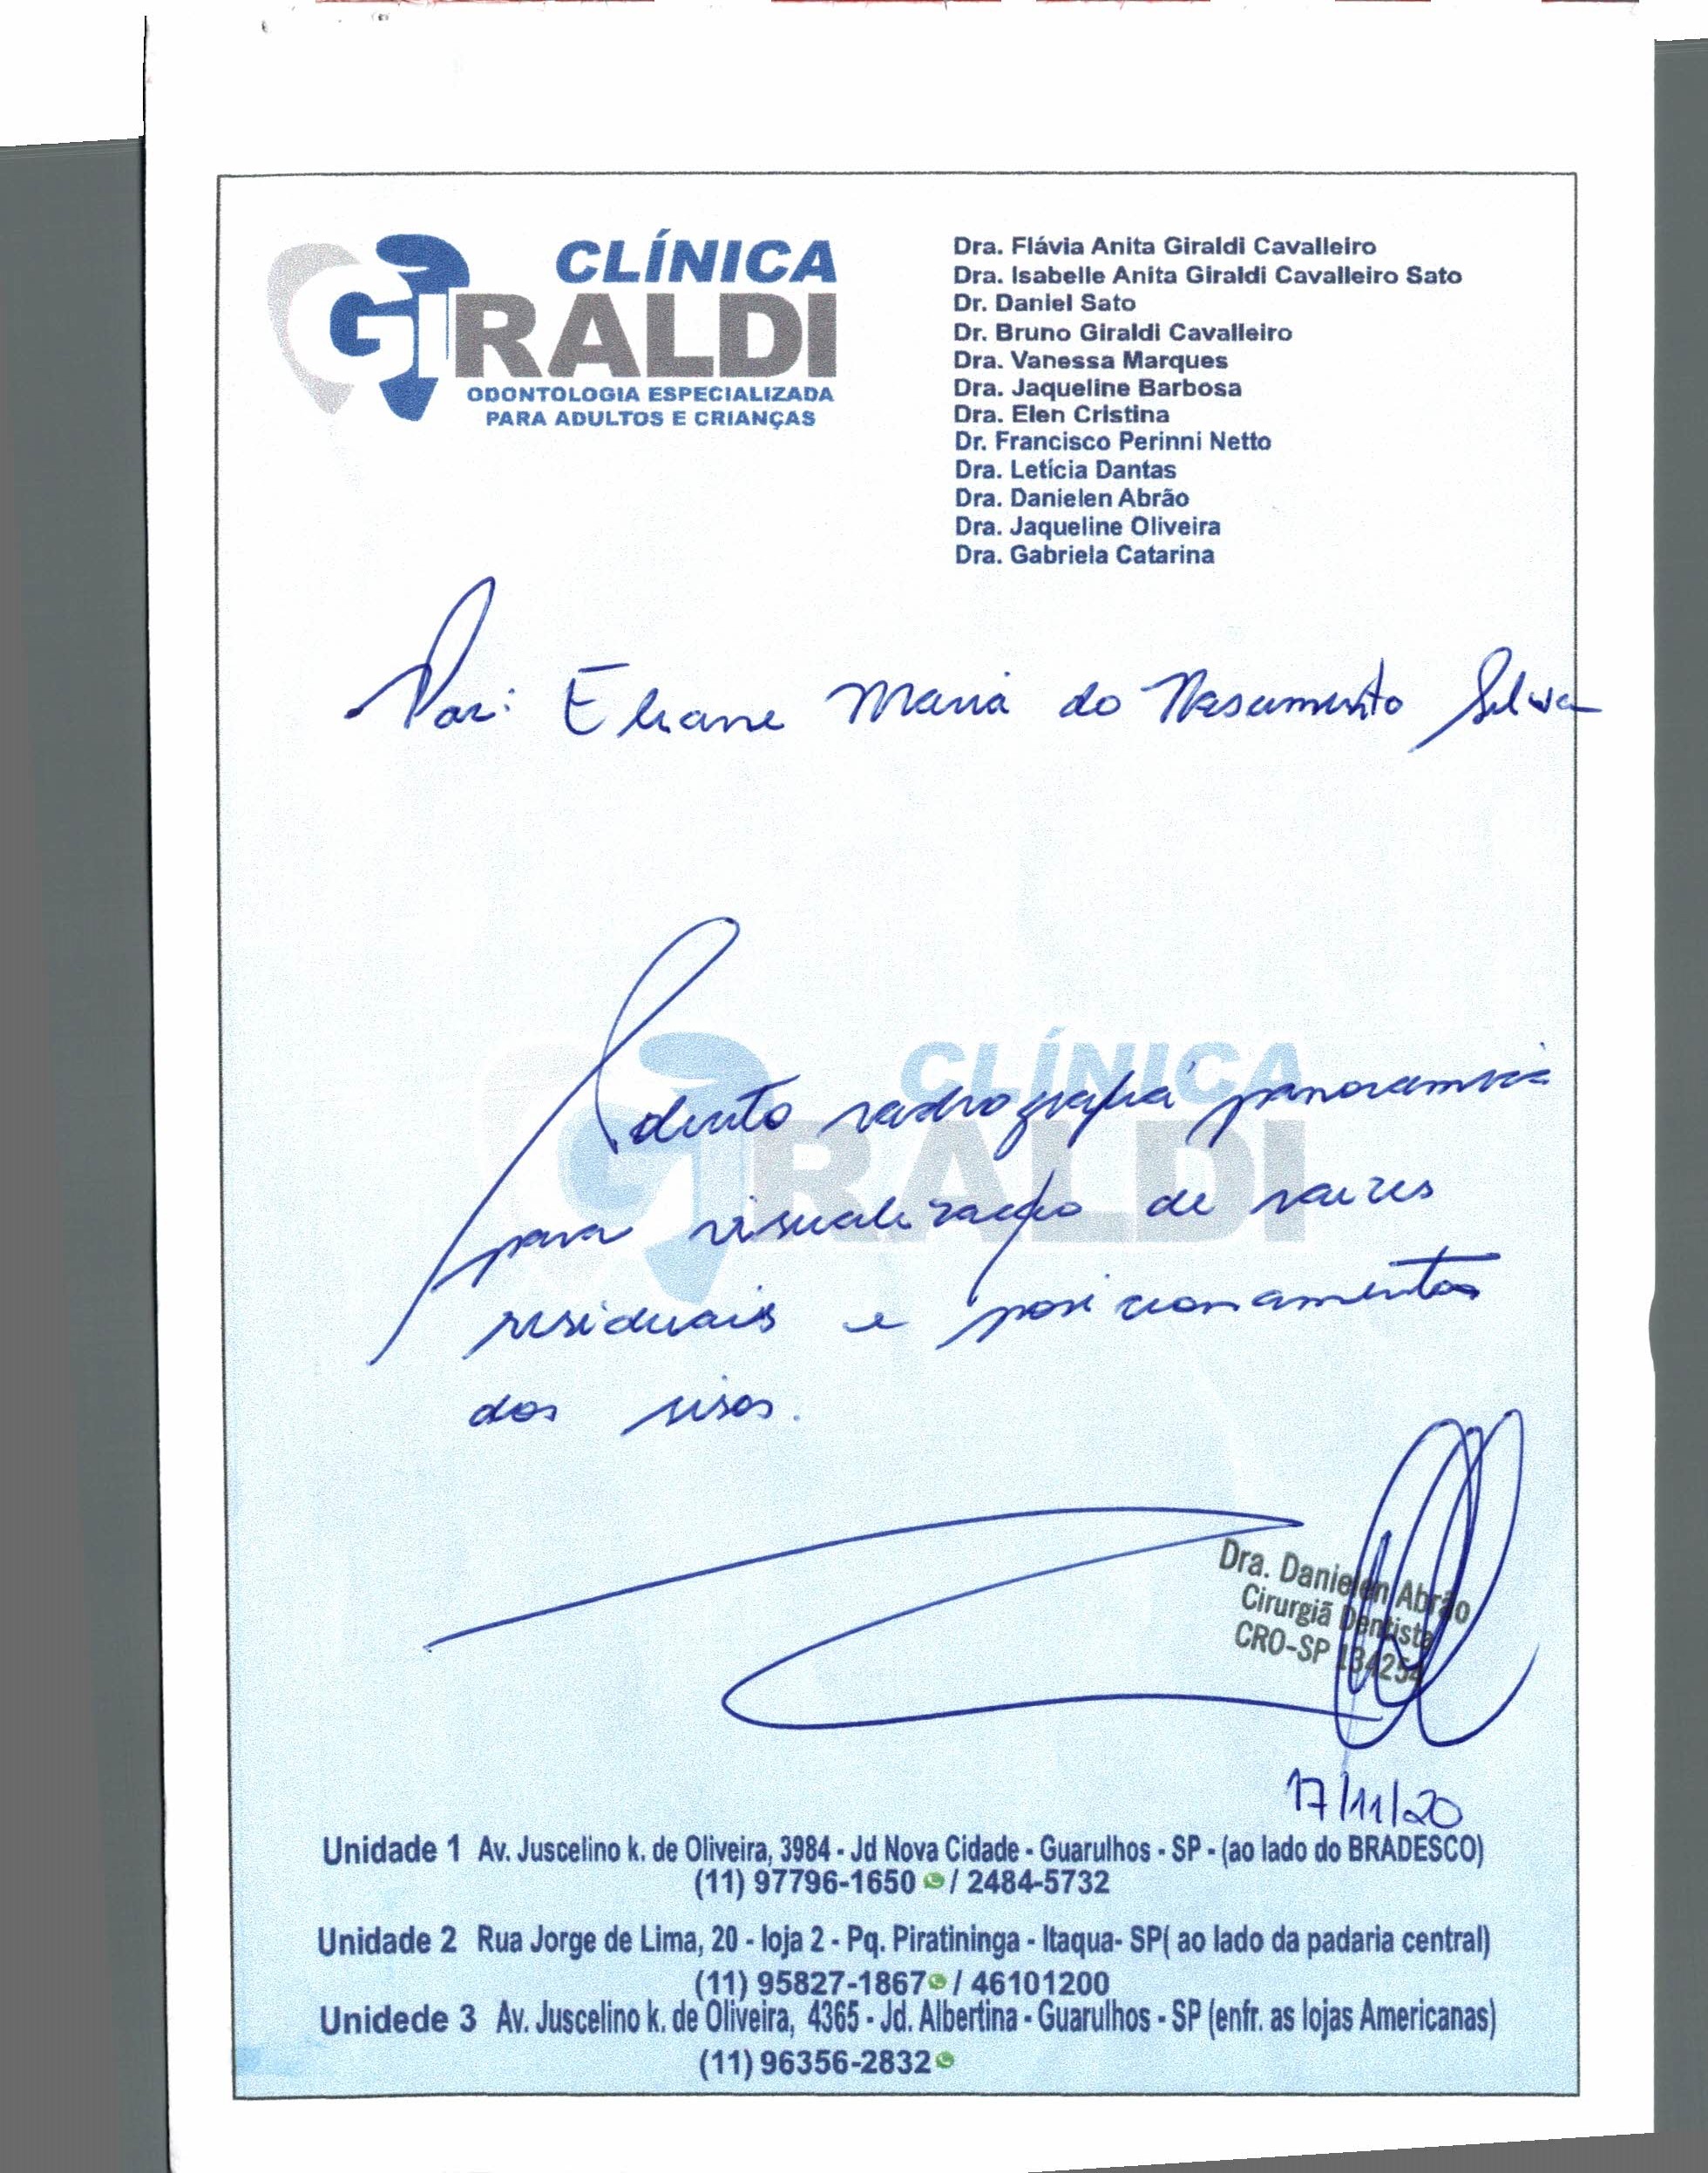 CLÍNICA
GIRALDI
ODONTOLOGIA ESPECIALIZADA
PARA ADULTOS E CRIANÇAS
Dra. Flávia Anita Giraldi Cavalleiro
Dra. Isabelle Anita Giraldi Cavalleiro Sato
Dr. Daniel Sato
Dr. Bruno Giraldi Cavalleiro
Dra. Vanessa Marques
Dra. Jaqueline Barbosa
Dra. Elen Cristina
Dr. Francisco Perinni Netto
Dra. Letícia Dantas
Dra. Danielen Abrão
Dra. Jaqueline Oliveira
Dra. Gabriela Catarina
Pac: Eliane Maria do Nascimento Silva
CLÍNICA
GIRALDI
radiografia panoramica
para visualização de raizes
residuais e posicionamentos
dos sisos.
Dra. Danielen Abrão
Cirurgiã Dentista
CRO-SP 134254
17/11/20
Unidade 1 Av. Juscelino k. de Oliveira, 3984 - Jd Nova Cidade - Guarulhos - SP - (ao lado do BRADESCO)
(11) 97796-1650 / 2484-5732
Unidade 2 Rua Jorge de Lima, 20 - loja 2 - Pq. Piratininga - Itaqua- SP( ao lado da padaria central)
(11) 95827-1867 / 46101200
Unidede 3 Av. Juscelino k. de Oliveira, 4365 - Jd. Albertina - Guarulhos - SP (enfr. as lojas Americanas)
(11) 96356-2832